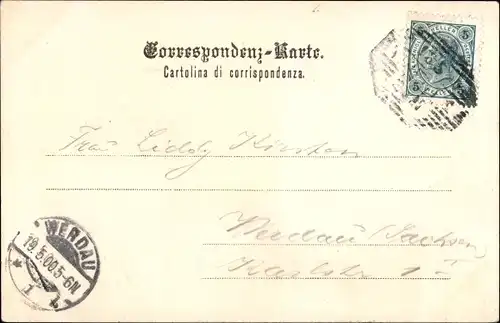 Correspondenz-Karte.
Cartolina di corrispondenza.
5 HELLER 5
5 5
Frau Liddy Kirsten
Werdau Sachsen
WERDAU
19.5.00.5-6N
* 1 b.